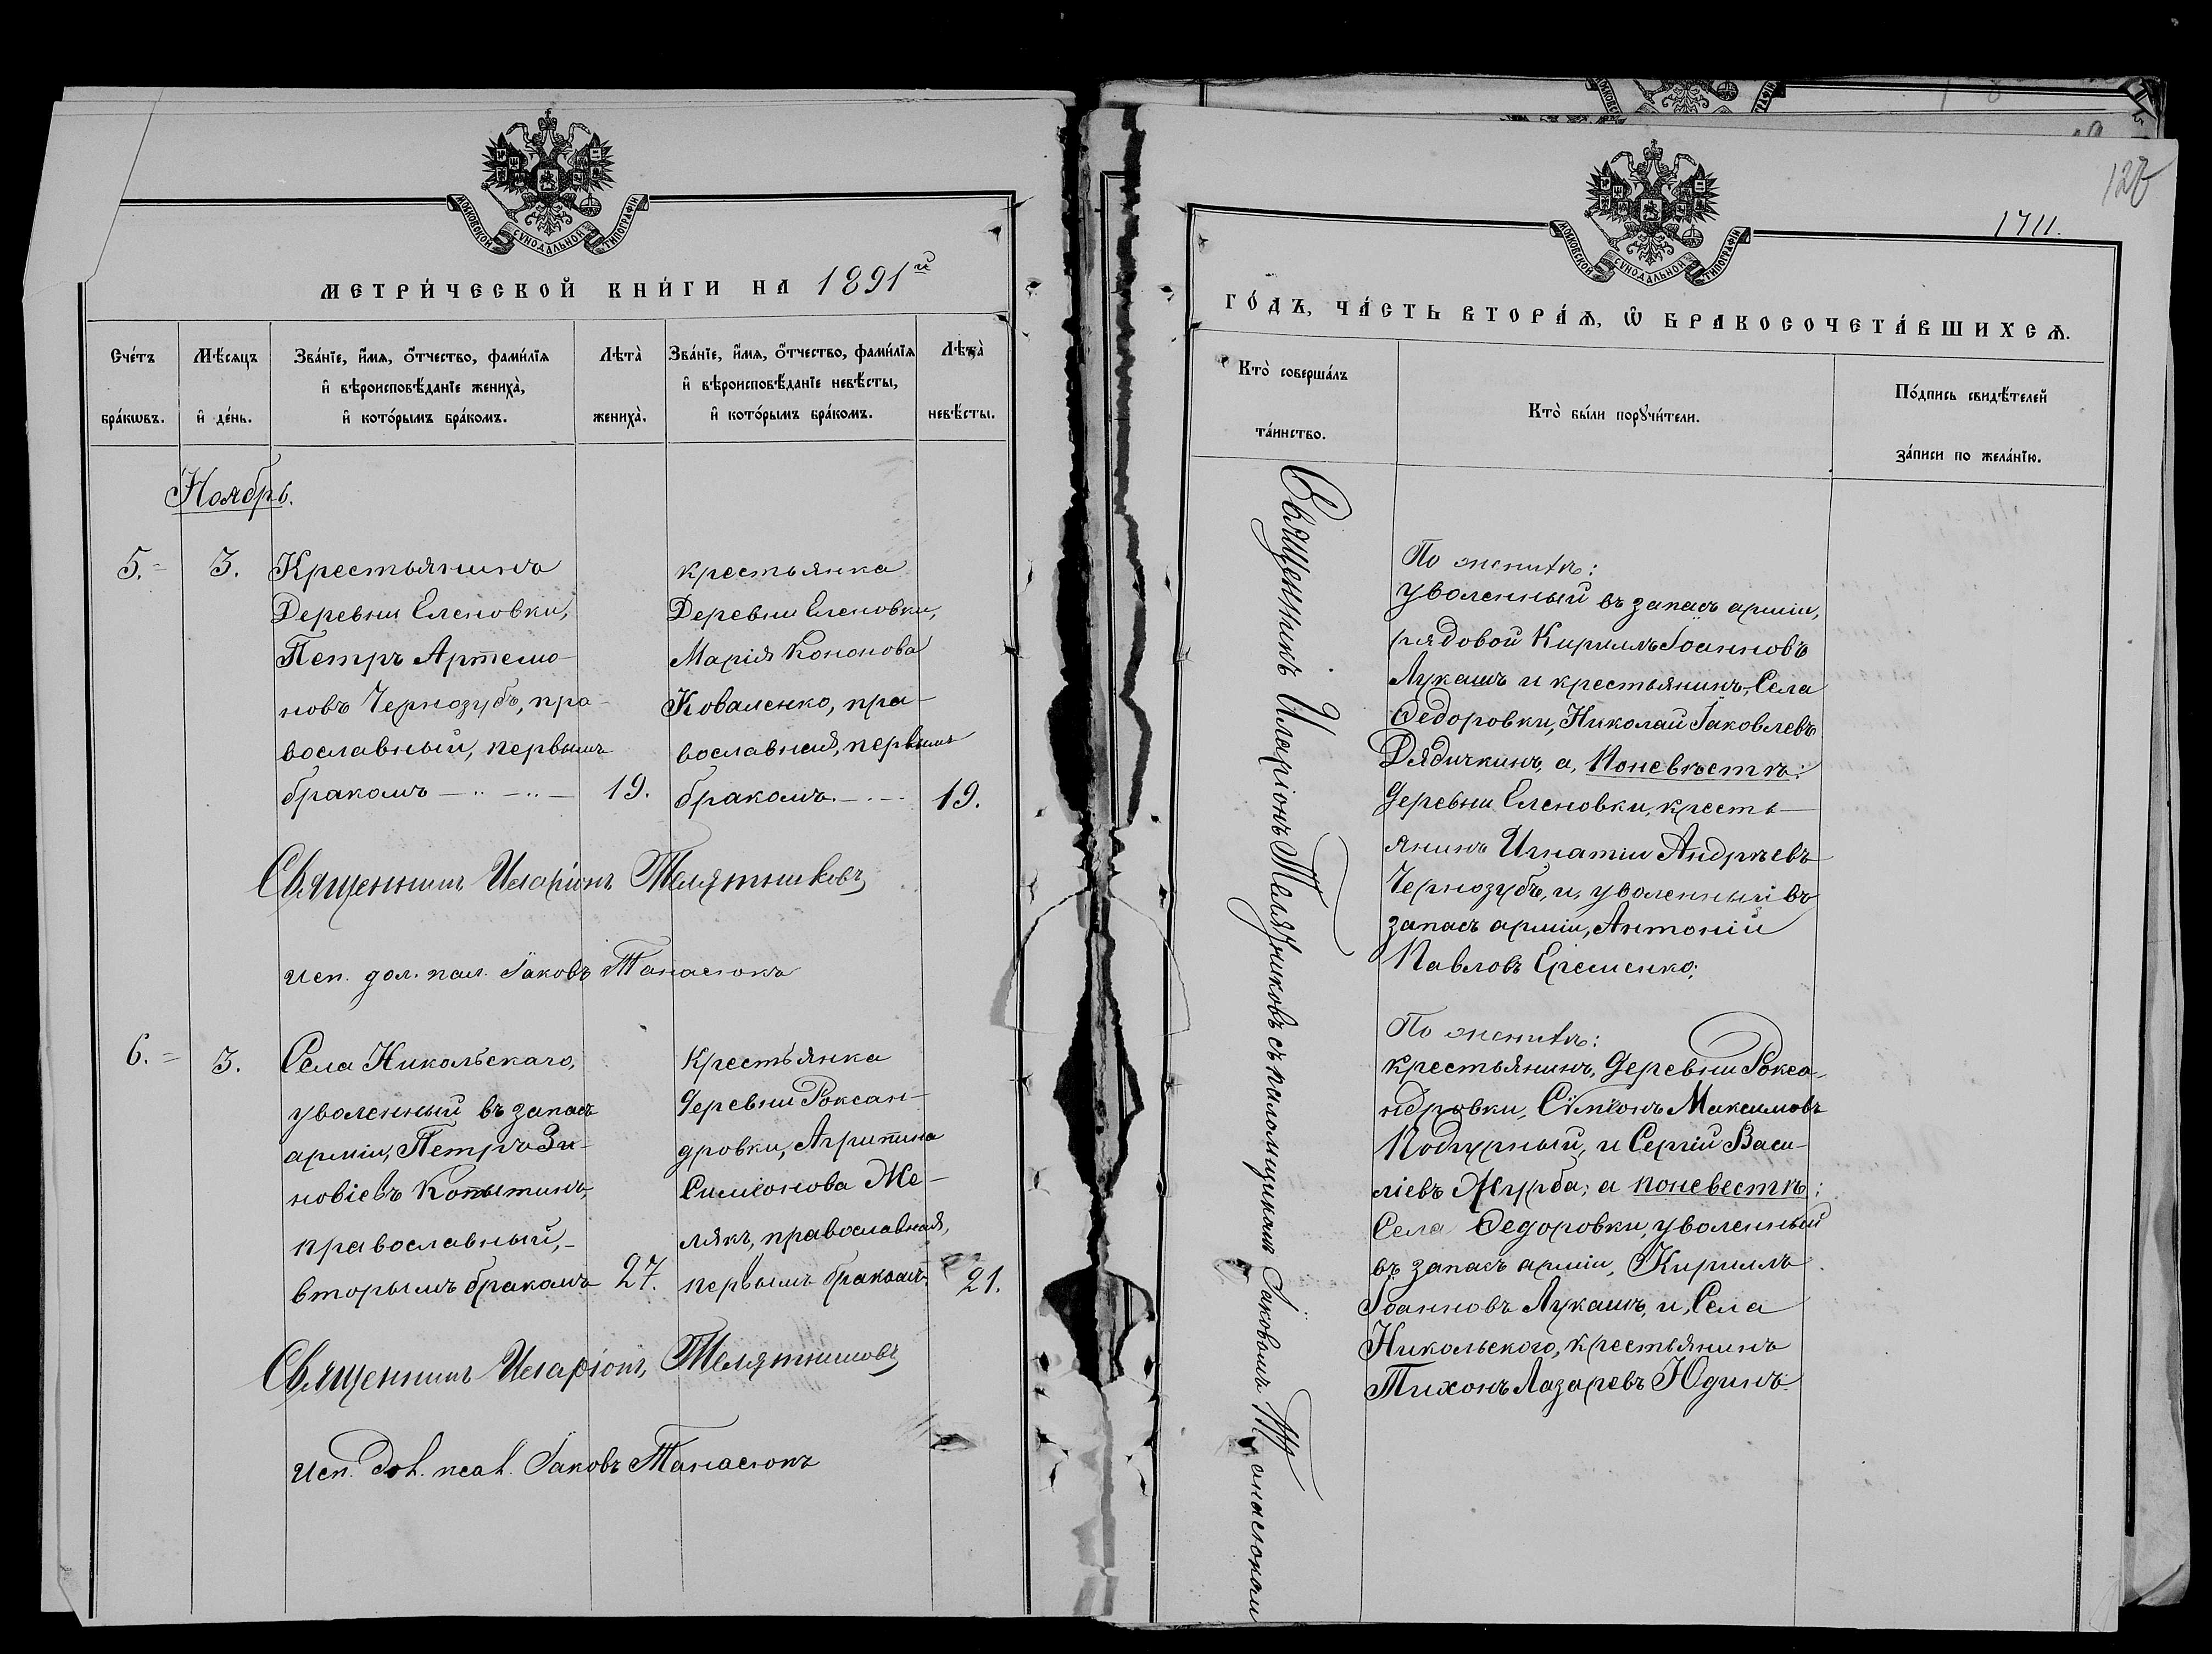 МОСКОВСКОЙ СѴНОДАЛЬНОЙ ТИПОГРАФІИ
МЕТРИ́ЧЕСКОЙ КНИ́ГИ НА 1891й
Сче́тъ бра́кѡвъ.
Мѣ́сяцъ и де́нь.
Зва́нїе, и́мя, о́тчество, фами́лїя
и вѣроисповѣ́данїе жениха̀,
и кото́рымъ бра́комъ.
Лѣта̀ жениха̀.
Зва́нїе, и́мя, о́тчество, фами́лїя
и вѣроисповѣ́данїе невѣ́сты,
и кото́рымъ бра́комъ.
Лѣта̀ невѣ́сты.
Ноябрь.
5. 3.
Крестьянинъ
Деревни Еленовки,
Петръ Артемо-
новъ Чернозубъ, пра-
вославный, первымъ
бракомъ 19.
крестьянка
Деревни Еленовки,
Марія Кононова
Коваленко, пра-
вославная, первымъ
бракомъ. 19.
Священникъ Иларіонъ Телятниковъ
исп. дол. псал. Іаковъ Танасюкъ
6. 3.
Села Никольскаго,
уволенный въ запасъ
арміи, Петръ Зи-
новіевъ Копытинъ,
православный,
вторымъ бракомъ 27.
Крестьянка
деревни Роксан-
дровки, Агрипина
Симеонова Ме-
лякъ, православная,
первымъ бракомъ. 21.
Священникъ Иларіонъ Телятниковъ
Исп. дол. псал. Іаковъ Танасюкъ
127
1711.
МОСКОВСКОЙ СѴНОДАЛЬНОЙ ТИПОГРАФІИ
ГО́ДЪ, ЧА́СТЬ ВТОРА́Я, Ѡ БРАКОСОЧЕТА́ВШИХСЯ.
Кто̀ соверша́лъ та́инство.
Кто̀ бы́ли порꙋчи́тели.
По́дпись свидѣ́телей
за́писи по жела́нїю.
Священникъ Иларіонъ Телятниковъ съ псаломщикомъ Іаковомъ Танасюкомъ
По женихѣ:
уволенный въ запасъ арміи,
рядовой Кириллъ Іоанновъ
Лукашъ и крестьянинъ, Села
Ѳедоровки, Николай Іаковлевъ
Дядичкинъ, а, по невѣстѣ:
деревни Еленовки, кресть-
янинъ Игнатій Андреевъ
Чернозубъ, и, уволенный въ
запасъ арміи, Антоній
Павловъ Еременко;
По женихѣ:
крестьянинъ, деревни Рокса-
ндровки, Сѵмеонъ Максимовъ
Подгурный, и Сергій Васи-
ліевъ Журба; а по невестѣ:
Села Ѳедоровки, уволенный
въ запасъ арміи, Кириллъ
Іоанновъ Лукашъ, и, Села
Никольского, крестьянинъ
Тихонъ Лазаревъ Юдинъ.